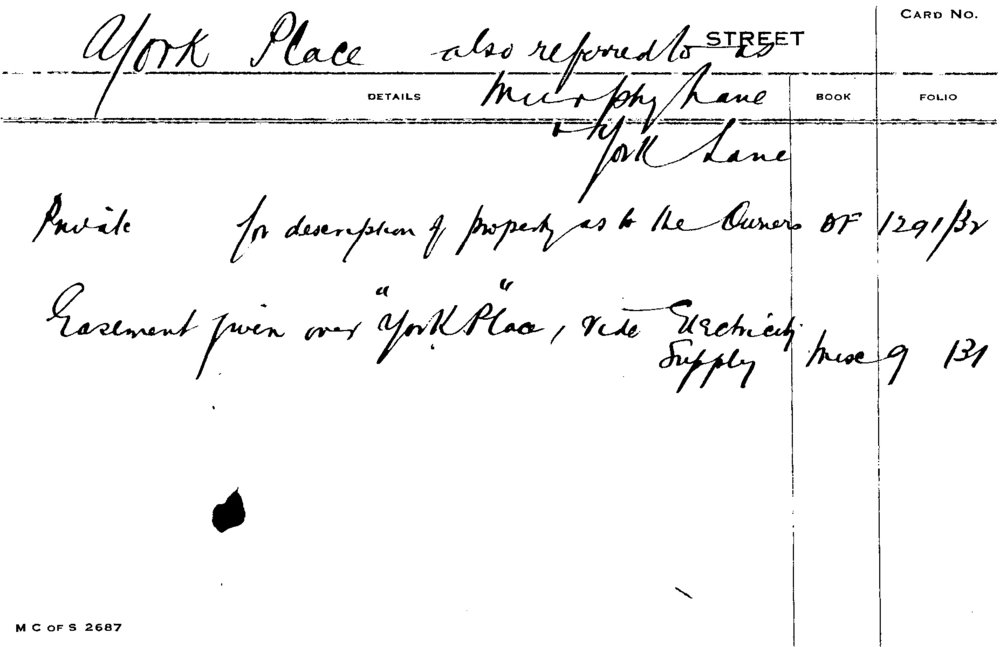 CARD NO.
York Place also referred to as STREET
DETAILS Murphy Lane BOOK FOLIO
& York Lane
Private for description of property as to the Owners DF 1291/32
Easement given over "York Place", vide Electricity
Supply Misc 9 131
M C OF S 2687